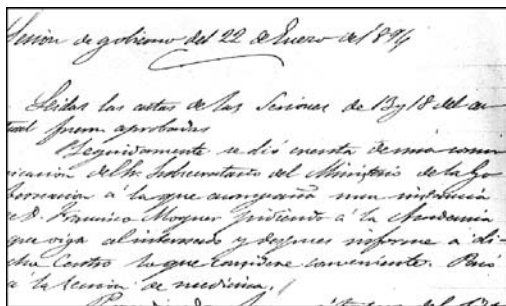 Sesion de gobierno del 22 de Enero de 1894
Leidas las actas de las Sesiones de 13 y 18 del ac
tual fueron aprobadas
Seguidamente se dió cuenta de una comu
nicacion del Sr. Subsecretario del Ministerio de la Go
bernacion á la que acompaña una instancia
de D. Francisco Moquer pidiendo á la Academia
que oiga al interesado y despues informe a di
cho Centro lo que considere conveniente. Pasó
á la seccion de medicina.